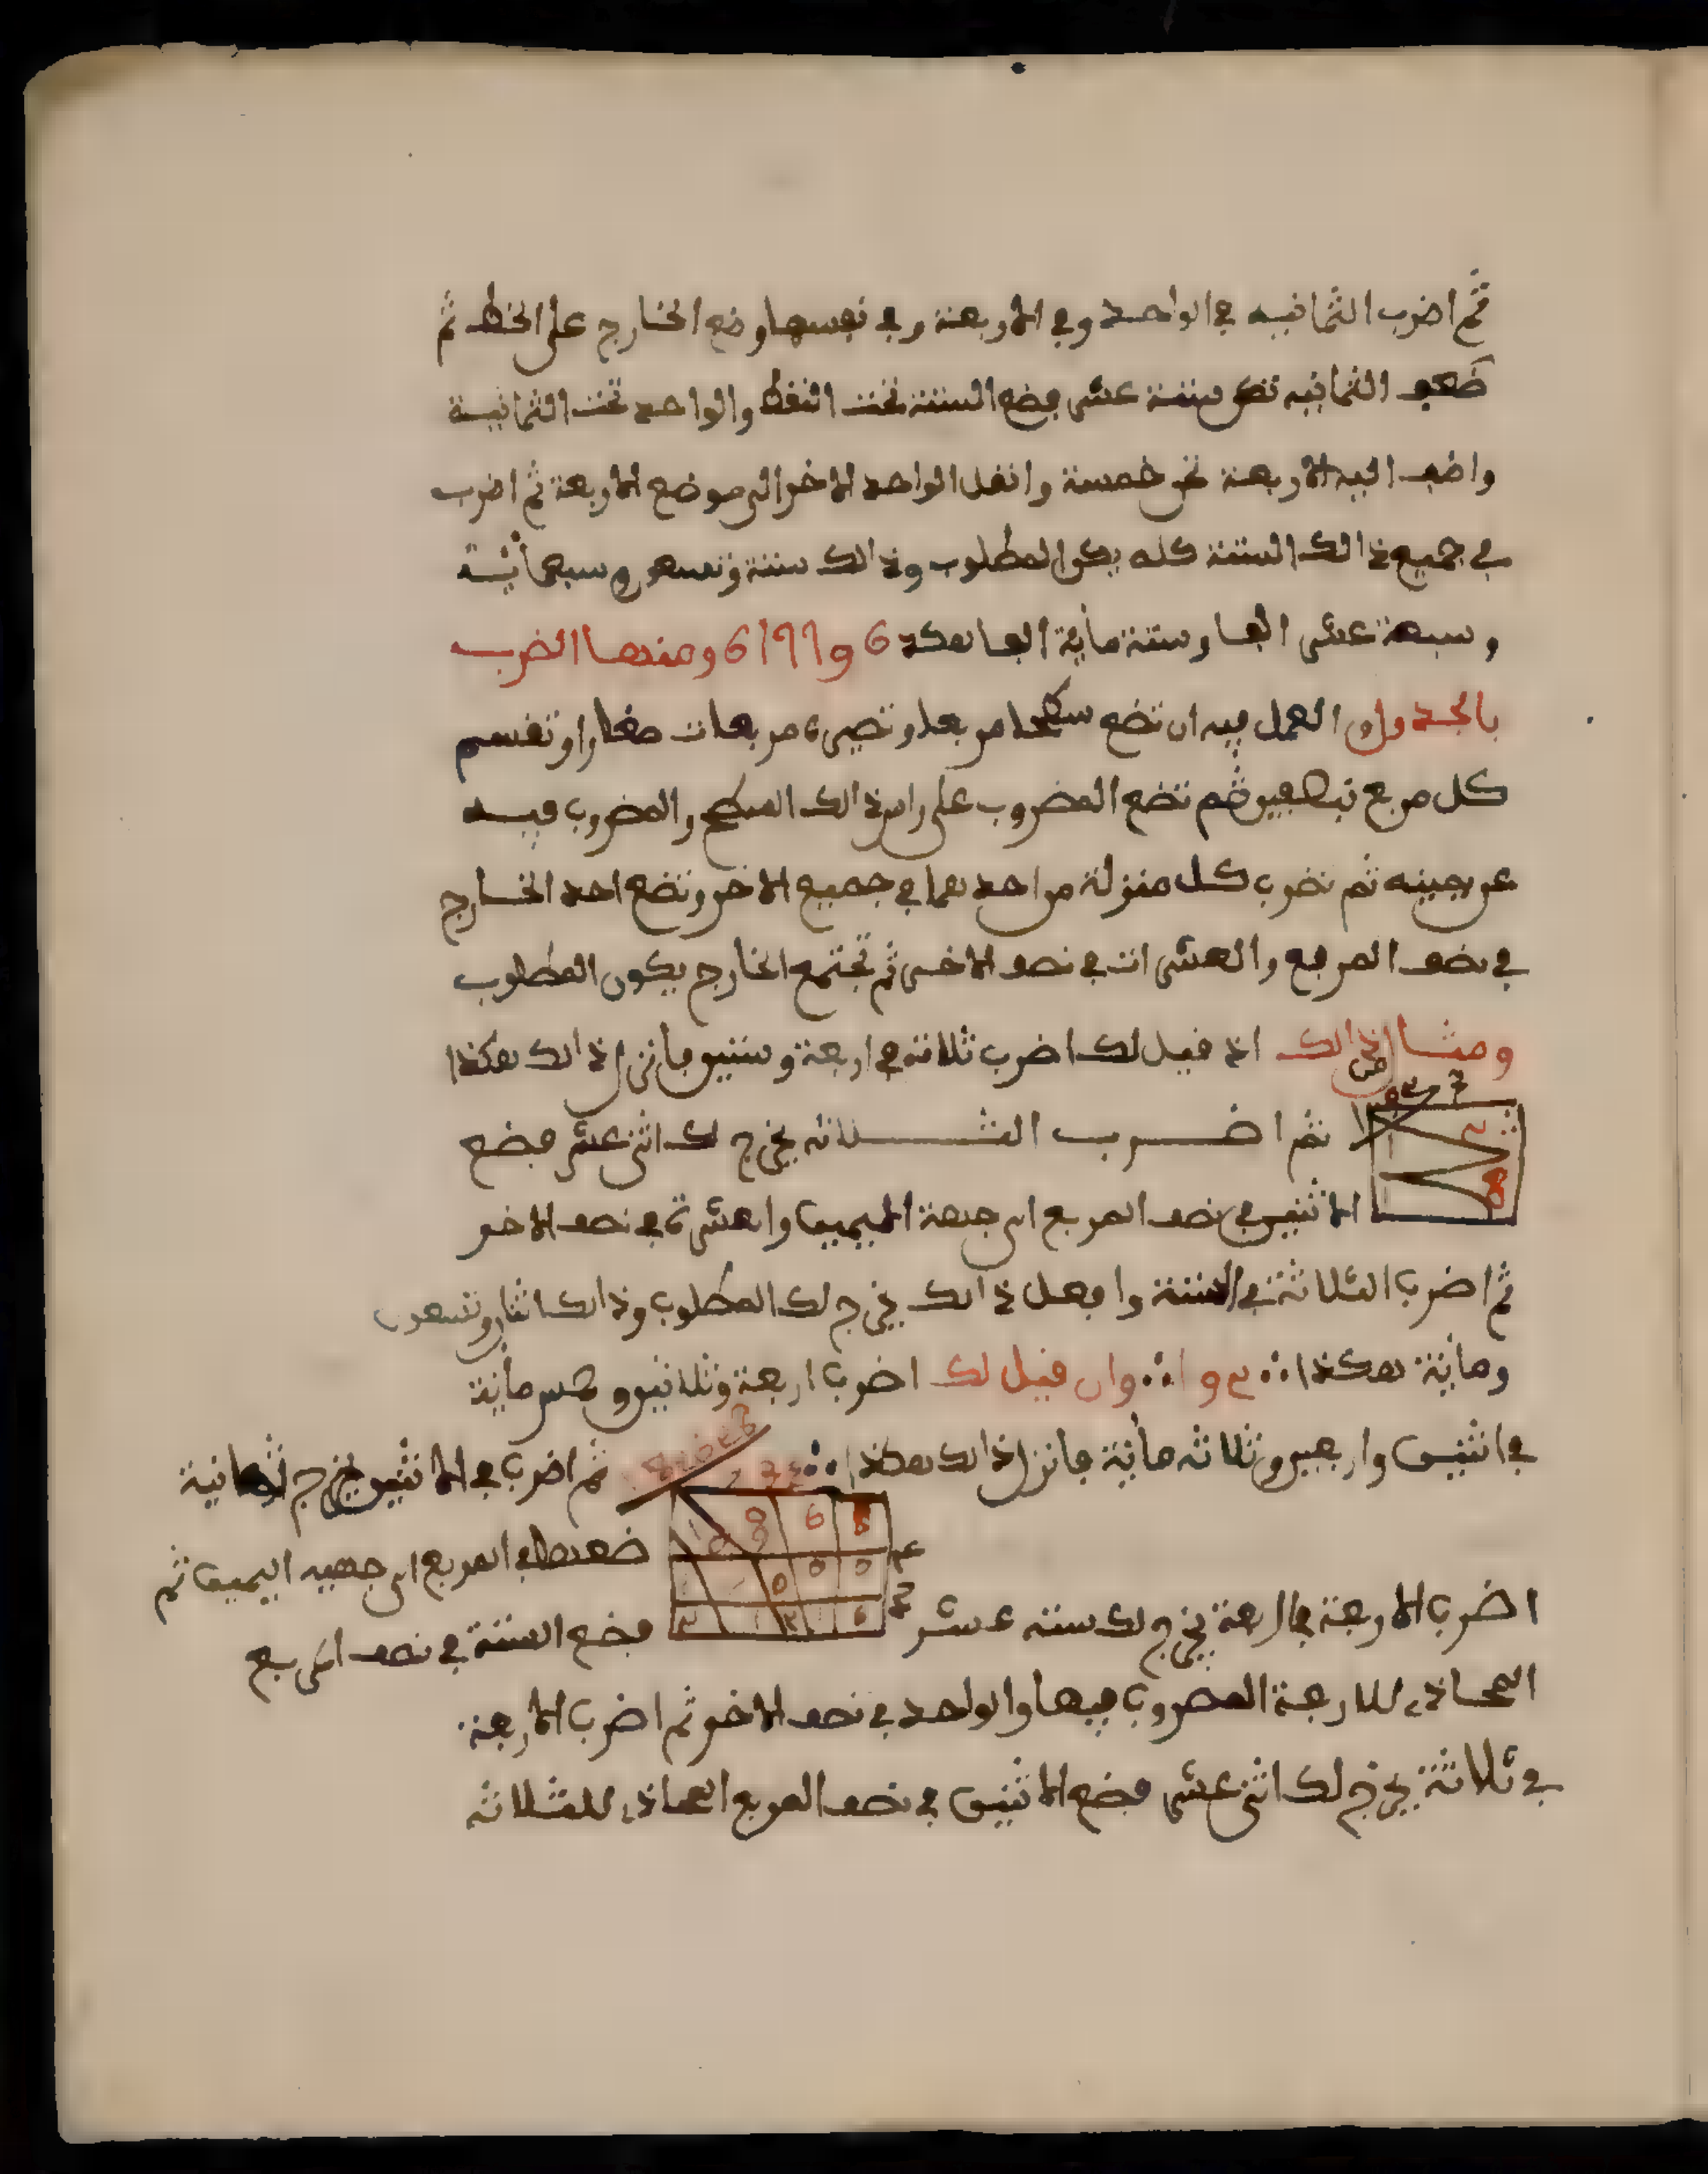 ثم اضرب الثمانيه في الواحد وفي الاربعة وفي نفسها وضع الخارج على الخط ثم
ضعف الثمانيه تكن ستة عشر فضع الستة تحت النقط والواحد تحت الثمانية
واضف اليه الاربعة تكن خمسة وانقل الواحد الاخر الى موضع الاربعة ثم اضرب
في جميع ذالك الستة كله يكن المطلوب وذالك ستة وتسعون وسبعمائية
وسبعة عشر الفا وستة ماية الفا هكذ 6 ومنها الضرب
بالجدول العمل فيه ان تضع سطحا مربعا وتصيره مربعات صغارا وتقسم
كل مربع نصفين ثم تضع المضروب على راس ذالك السطح والمضروب فيه
عن يمينه ثم تضرب كل منزلة من احدهما في جميع الاخر وتضع احد الخارج
في نصف المربع والعشرات في نصف الاخر ثم تجتمع الخارج يكون المطلوب
ومثال ذالك اذ قيل لك اضرب ثلاثة في اربعة وستين فانزل ذالك هكذا
ثم اضرب الثلاثه يخرج لك اثنى عشر فضع
الاثنين في نصف المربع الى جهة اليمين والعشرة في نصف الاخر
ثم اضرب الثلاثة في الستة وافعل ذالك يخرج لك المطلوب وذالك اثنان وتسعون
وماية هكذا وان قيل لك اضرب اربعة وثلاثين وخمس ماية
في اثنين واربعين وثلاثه ماية فانزل ذالك هكذا ثم اضرب في الاثنين يخرج ثمانية
ضعها في المربع الى جهة اليمين ثم
اضرب الاربعة في اربعة يخرج لك ستة عشر فضع الستة في نصف المربع
المحاذي للاربعة المضروب فيها والواحد في نصف الاخر ثم اضرب الاربعة
في ثلاثة يخرج لك اثنى عشر فضع الاثنين في نصف المربع المحاذي للثلاثه